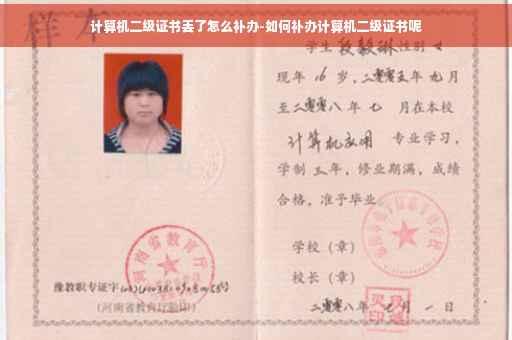 计算机二级证书丢了怎么补办-如何补办计算机二级证书呢
样本
学生段毅琳性别女
现年16岁，二零零五年九月
至二零零八年七月在本校
计算机应用 专业学习，
学制三年，修业期满，成绩
合格，准予毕业
学校（章）
校长（章）
二零零八年七月一日
河南省教育厅
豫教职专证字
(河南省教育厅验印)